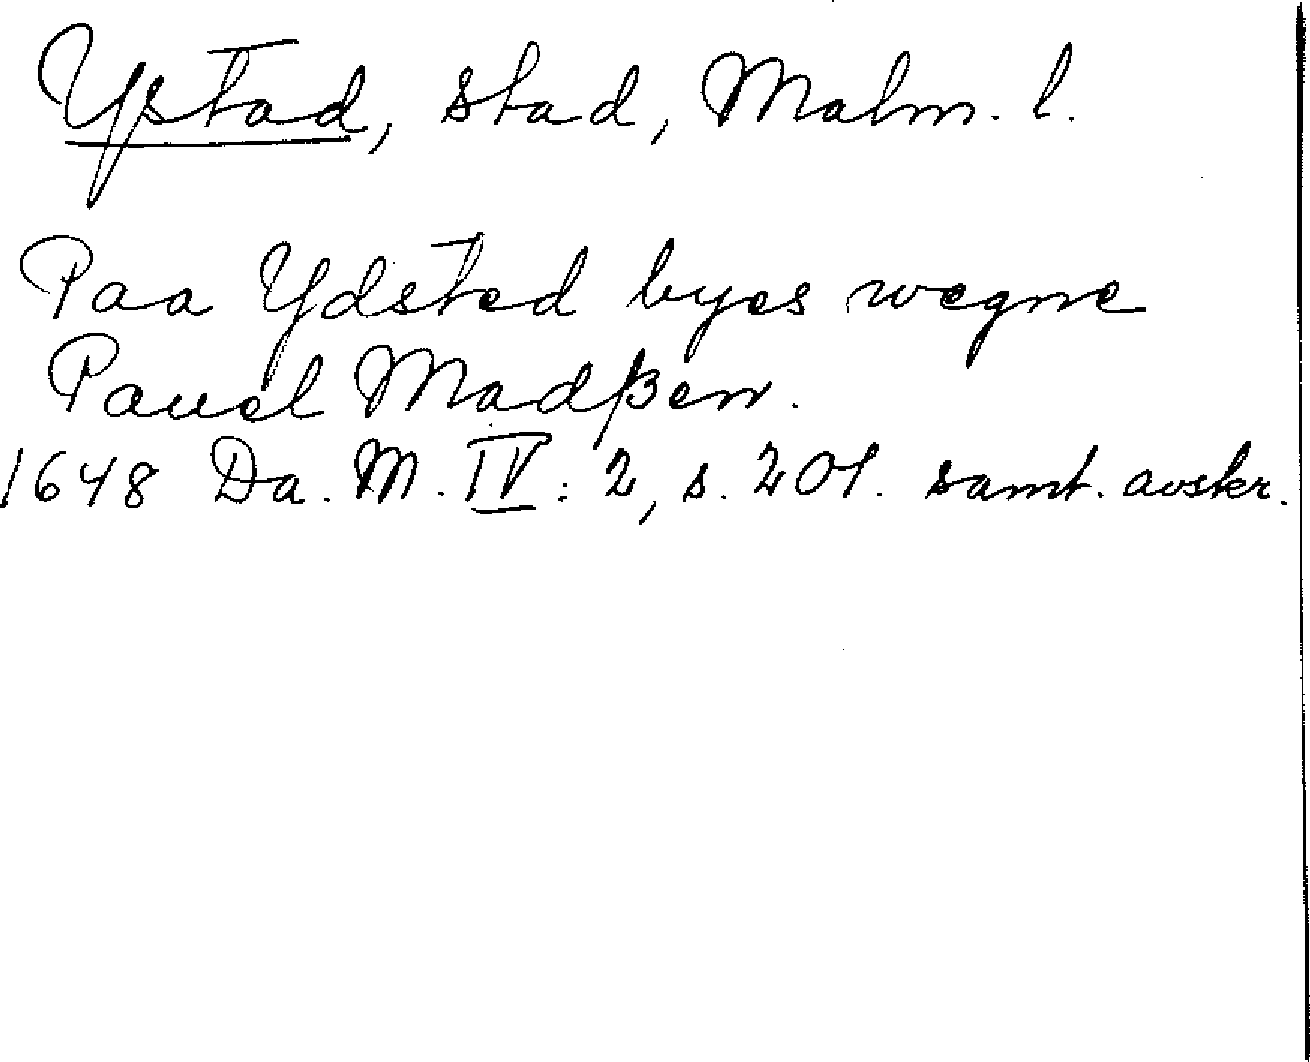 Ystad, stad, Malm. l.
Paa Ydsted byes wegne
Pauel Madßen.
1648 Da. M. IV: 2, s. 201. samt. avskr.